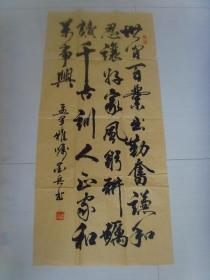 世间百業出勤奮謙和
忍讓好家風躬耕礪
讀千古訓人正家和
萬事興
雅嘱 书